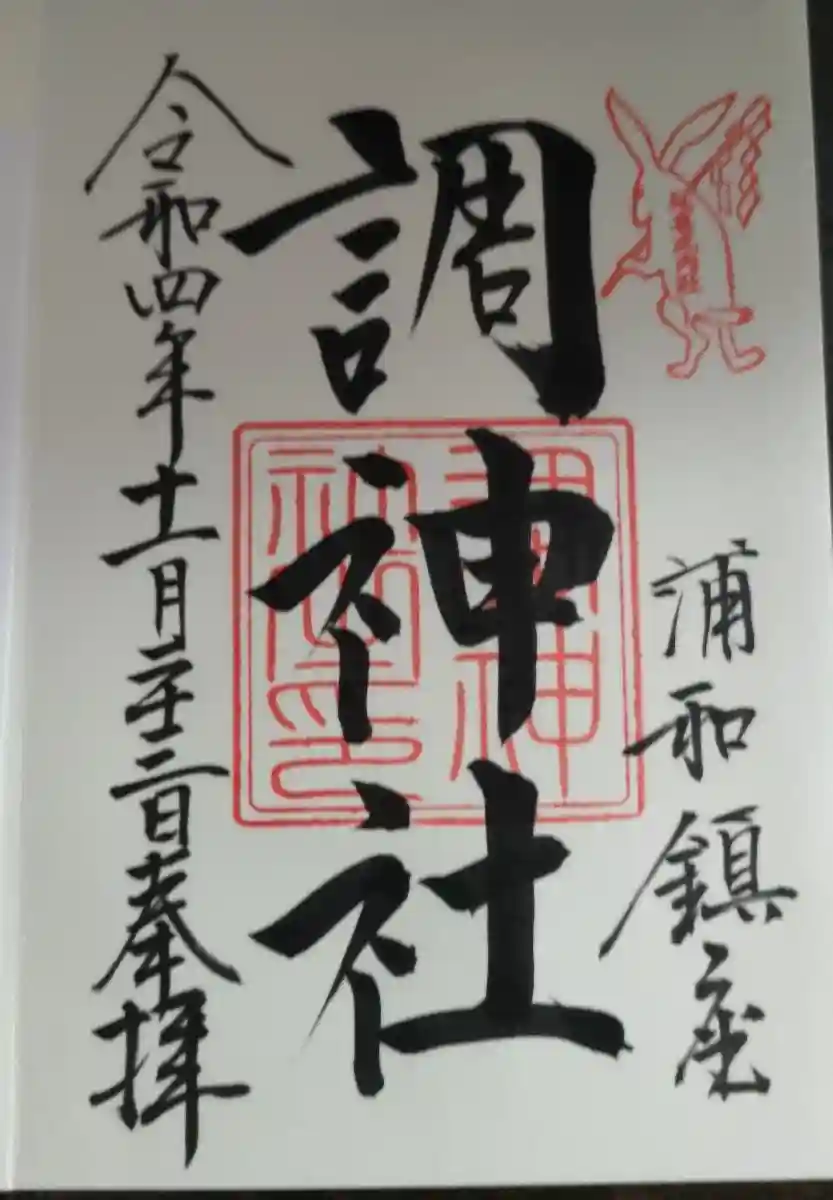 浦和鎮座
調神社
調神
社之印
令和四年十一月二十三日奉拝